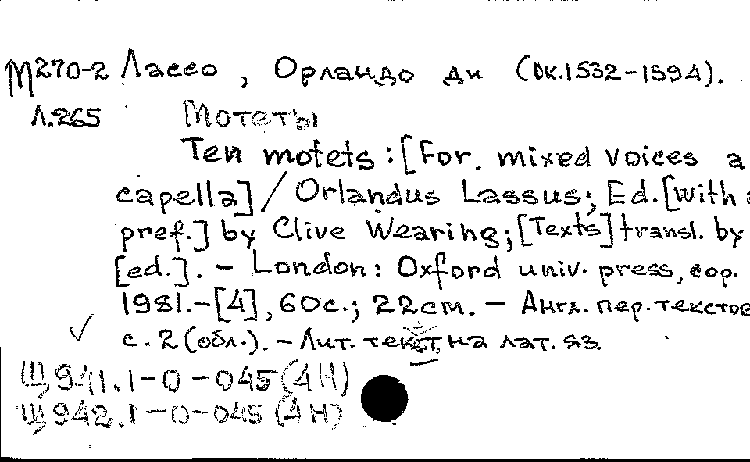 М270-2 Лассо, Орландо ди (ок.1532-1594).
Л.265 Мотеты
Ten motets : [For. mixed voices a
capella] / Orlandus Lassus; Ed. [with a
pref.] by Clive Wearing; [Texts] transl. by
[ed.]. - London: Oxford univ. press, cop.
1981.-[4], 60с.; 22см. - Англ. пер. текстов
с. 2 (обл.). - Лит. текст на лат. яз.
Щ941.1-0-045(4Н)
Щ942.1-0-045(4Н)